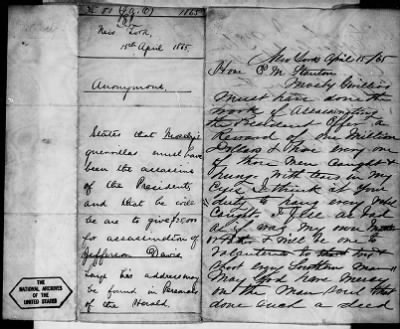 1865
New York,
15th April 1865.
Anonymous.
States that Mosby's
guerrillas must have
been the assassins
of the President,
and that he will
be one to give
for assassination of
Jefferson Davis.
Says his address may
be found in Personals
of the Herald
THE
NATIONAL ARCHIVES
OF THE
UNITED STATES
New York April 15/65
Hon E M Stanton
Mosby Guerillas
Must have done the
work of Assassinating
the President Offer a
Reward of one Million
Dollars & have every one
of those Men caught &
hung. With tears in my
Eyes I think it your
duty to hang every
Caught. I feel as bad
as if was my own
I will be one to
Volunteer to
Shoot Southern Man
May God have Mercy
on the Man Soul that
done such a deed